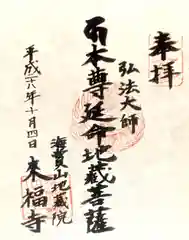 奉拝
弘法大師
本尊延命地蔵菩薩
海賞山地蔵院
来福寺
平成二十八年十月四日